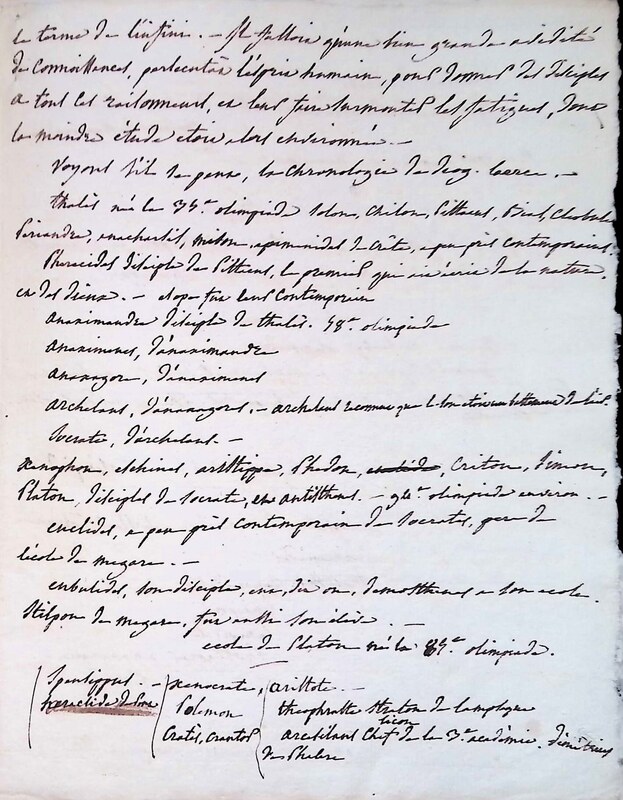 le terme de l'infini. — Il falloit qu'une bien grande avidité
de connoissances, persécutât l'esprit humain, pour donner des disciples
a tous ces raisonneurs, et leur faire surmonter les fatigues, dont
la moindre étude etoit alors environnée. —
Voyons s'il se peut, la chronologie de diog. laerce. —
thalès né la 35.e olimpiade solon, chilon, Pittacus, bias, cleobule
Periandre, anacharsis, mison, epimenides de crête, a peu près contemporains.
Pherecides disciple de Pittacus, le premier qui ait écrit de la nature,
et des dieux. — esope fut leur contemporain
anaximandre disciple de thalès. 48.e olimpiade
anaximenes, d'anaximandre
anaxagore, d'anaximenes
archelaus, d'anaxagore. — archelaus reconnut que le son etoit un battement de l'air.
Socrate, d'archelaus. —
xenophon, eschines, aristippe, Phedon, euclide, Criton, Simon,
Platon, disciples de socrate, et antisthens. — 94.e olimpiade environ. —
euclides, a peu près contemporain de socrates, pere de
l'école de megare. —
eubulides, son disciple, eut, dit on, demosthenes a son ecole.
Stilpon de megare, fut aussi son élève. —
ecole de Platon né la 88.e olimpiade.
Speusippus. — xenocrate, aristote. —
heraclide de Pont Polmon theophraste straton de lampsaque
licon
Cratès, crantor arcesilaus chef de la 3.e académie. démétrius
de Phalere